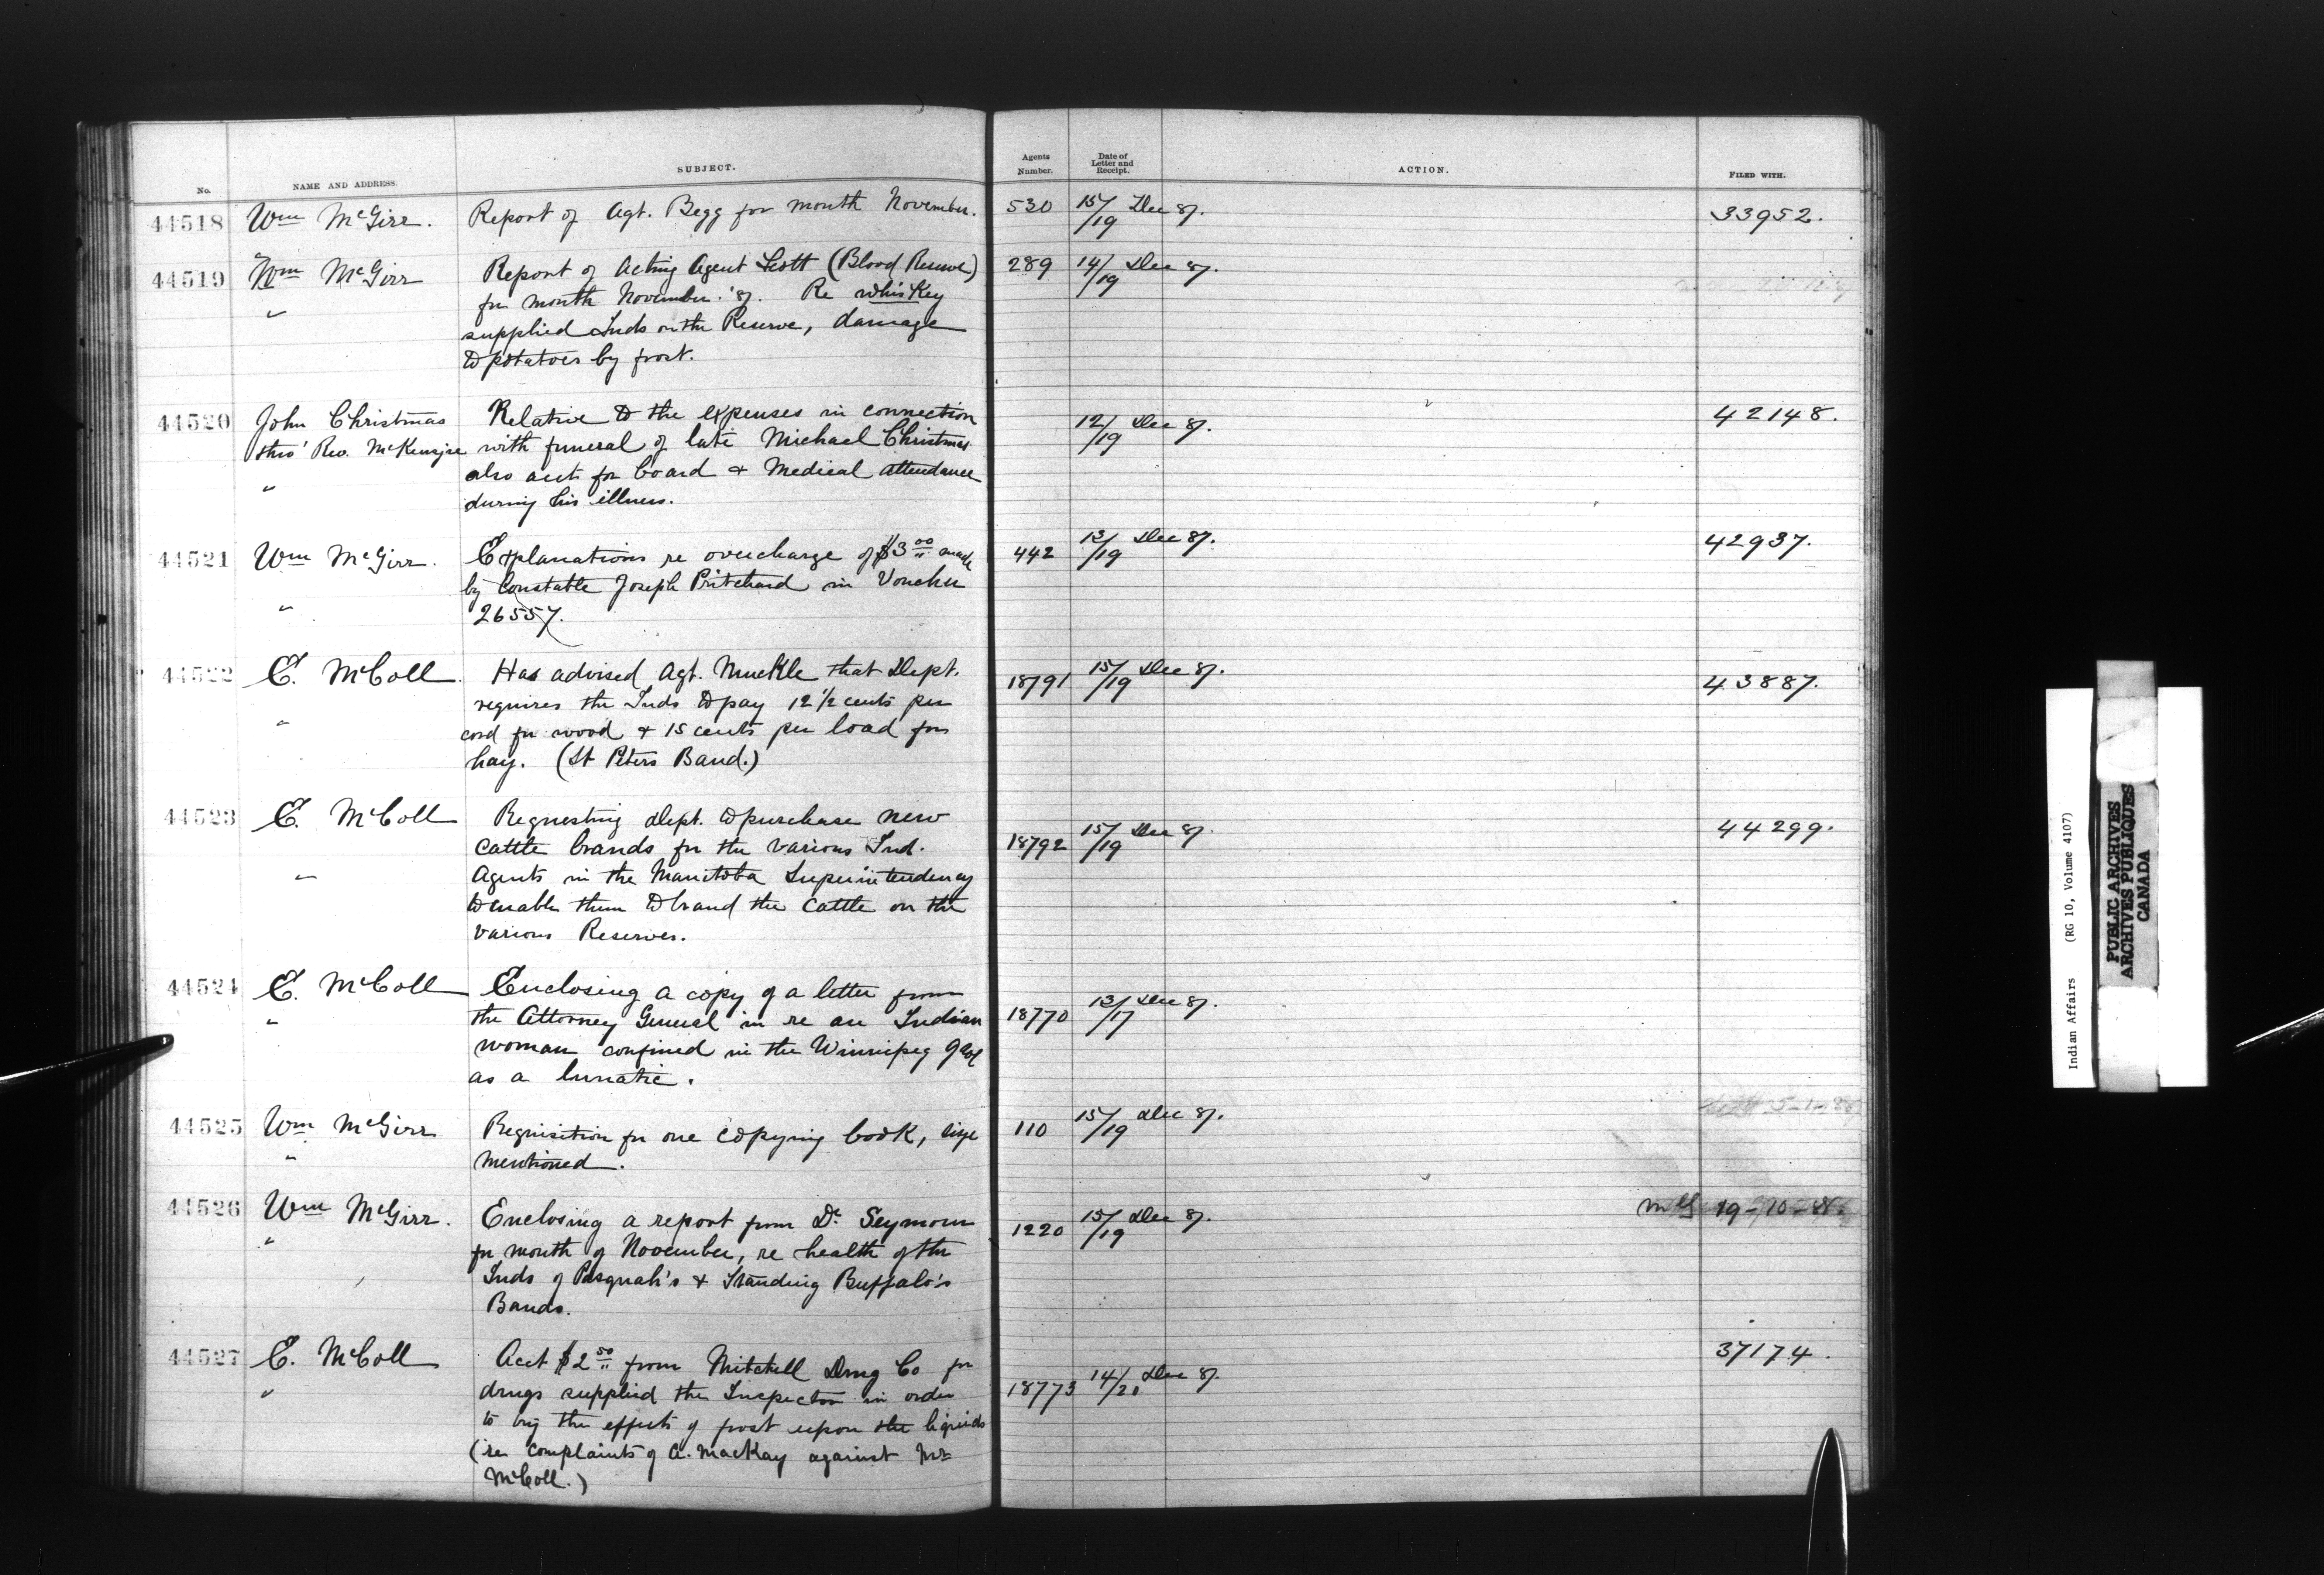 No. NAME AND ADDRESS. SUBJECT. Agents Number. Date of Letter and Receipt. ACTION. FILED WITH.
44518 Wm McGirr. Report of Agt. Begg for month November. 530 15/19 Dec 87. 33952.
44519 Wm McGirr Report of Acting Agent Scott (Blood Reserve) 289 14/19 Dec 87.
" for month November. '87. Re whiskey
supplied Inds on the Reserve, damage
to potatoes by frost.
44520 John Christmas Relative to the expenses in connection 12/19 Dec 87. 42148.
thro' Rev. McKenzie with funeral of late Michael Christmas
" also acct for board & Medical attendance
during his illness.
44521 Wm McGirr. Explanations re overcharge of $3 00 made 442 13/19 Dec 87. 42937.
by Constable Joseph Pritchard in Voucher
" 26557.
44522 E. McColl Has advised Agt. Muckle that Dept. 18791 15/19 Dec 87. 43887.
requires the Inds to pay 12 1/2 cents per
" cord for wood & 15 cents per load for
hay. (St Peters Band.)
44523 E. McColl Requesting dept. to purchase new 18792 15/19 Dec 87. 44299.
cattle brands for the various Ind.
" Agents in the Manitoba Superintendency
to enable them to brand the cattle on the
various Reserves.
44524 E. McColl Enclosing a copy of a letter from 18770 13/17 Dec 87.
" the Attorney General in re an Indian
woman confined in the Winnipeg gaol
as a lunatic.
44525 Wm McGirr Requisition for one copying book, size 110 15/19 Dec 87.
" mentioned.
44526 Wm McGirr. Enclosing a report from Dr. Seymour 1220 15/19 Dec 87. 19-10-88.
" for month of November, re health of the
Inds of Pasquah's & Standing Buffalo's
Bands.
44527 E. McColl Acct $2 50 from Mitchell Drug Co for 18773 14/20 Dec 87. 37174.
" drugs supplied the Inspector in order
to try the effects of frost upon the liquids
(re complaints of A. MacKay against Mr
McColl.)
Indian Affairs (RG 10, Volume 4107)
PUBLIC ARCHIVES
ARCHIVES PUBLIQUES
CANADA